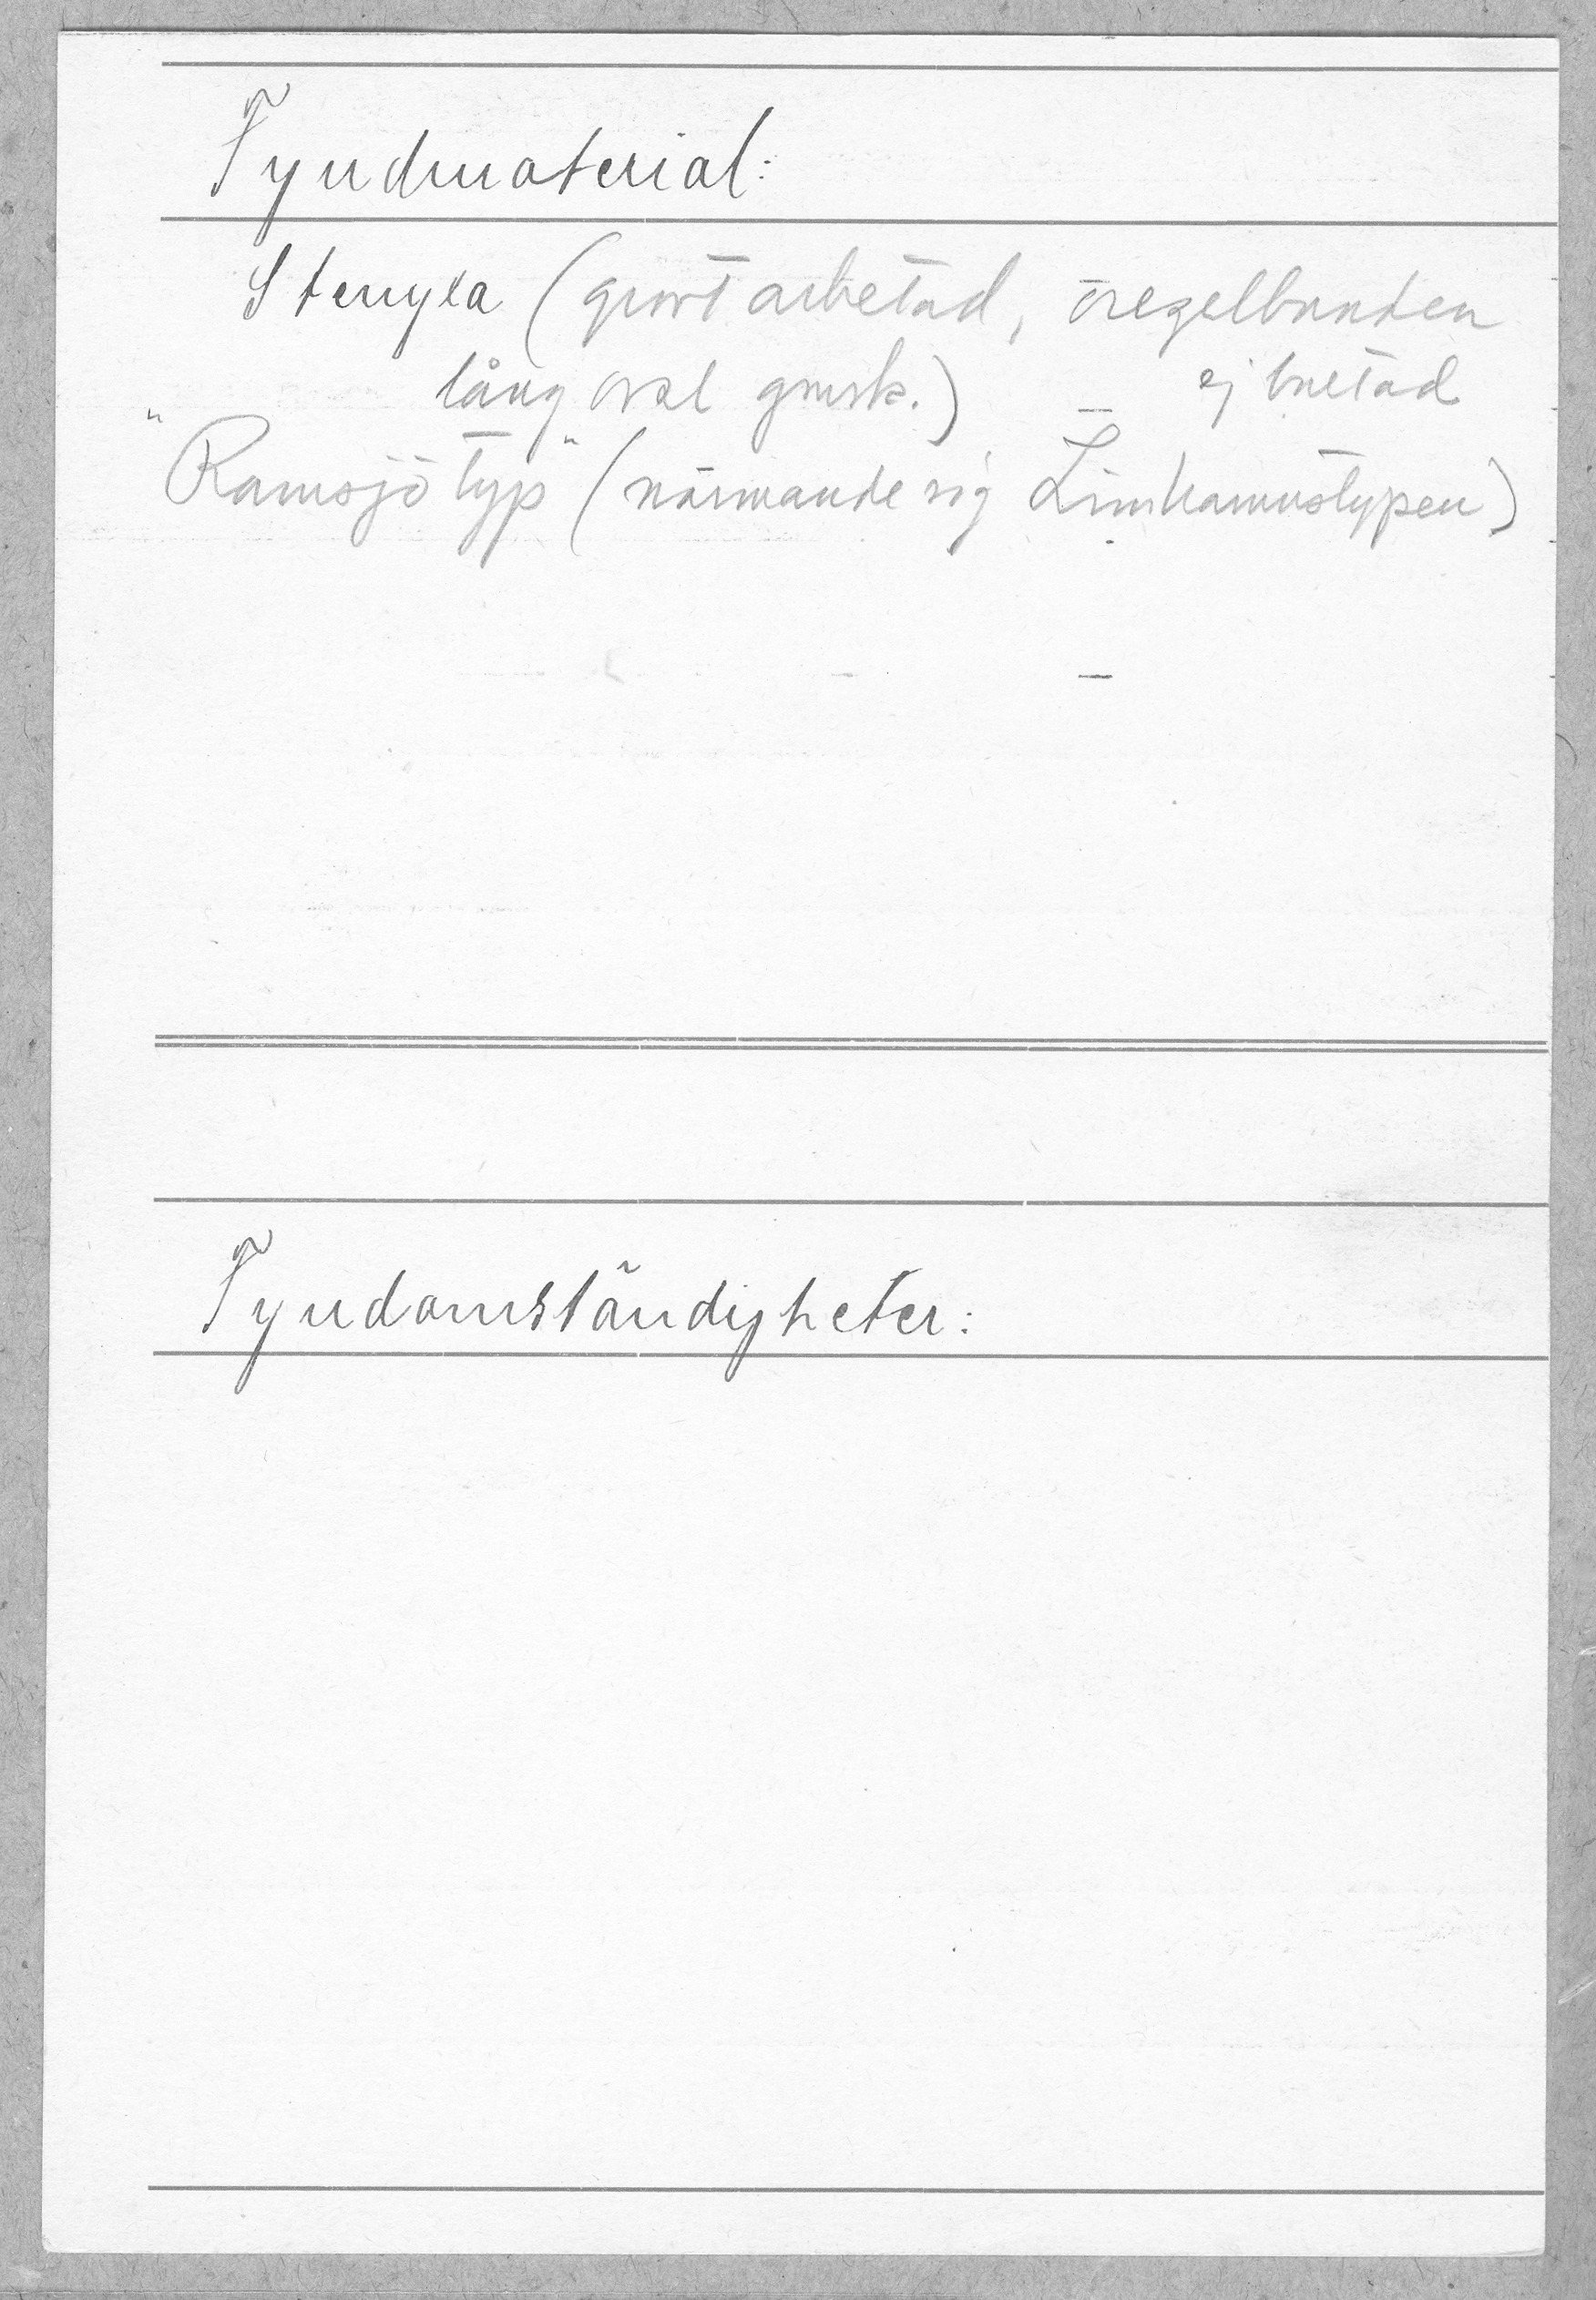 Fyndmaterial:
Stenyxa (grovt arbetad, oregelbunden
lång oval grnsk.) ej butad
"Ramsjö typ" (närmande sig Limhamnstypen)
Fyndomständigheter: